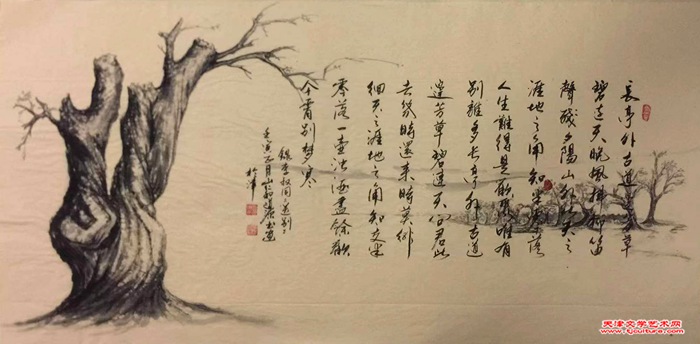 長亭外古道邊芳草
碧連天晚風拂柳笛
聲殘夕陽山外山天之
涯地之角知交半零落
人生難得是歡聚唯有
別離多長亭外古道
邊芳草碧連天问君此
去幾時還来時莫徘
徊天之涯地之角知交半
零落一壺浊酒盡餘歡
今宵别梦寒
録李叔同送别
壬寅元月山
於津
天津文学艺术网
www.tjculture.com